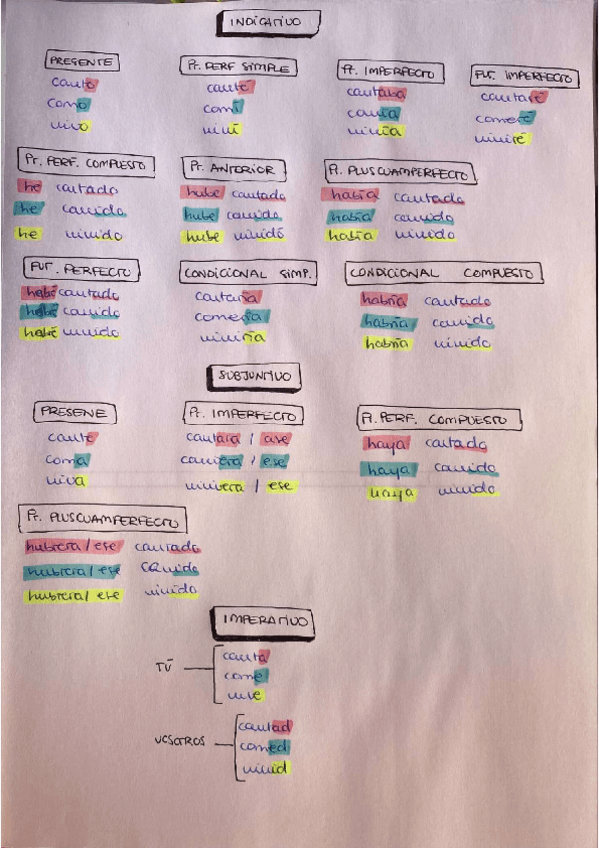 INDICATIVO
PRESENTE   Pt. PERF SIMPLE   Pt. IMPERFECTO   FUT. IMPERFECTO
canto   canté   cantaba   cantaré
como   comí   comía   comeré
vivo   viví   vivía   viviré
Pt. PERF. COMPUESTO   Pt. ANTERIOR   Pt. PLUSCUAMPERFECTO
he cantado   hube cantado   había cantado
he comido   hube comido   había comido
he vivido   hube vivido   había vivido
FUT. PERFECTO   CONDICIONAL SIMP.   CONDICIONAL COMPUESTO
habré cantado   cantaría   habría cantado
habré comido   comería   habría comido
habré vivido   viviría   habría vivido
SUBJUNTIVO
PRESENE   Pt. IMPERFECTO   Pt. PERF. COMPUESTO
cante   cantara / ase   haya cantado
coma   comiera / ese   haya comido
viva   viviera / ese   haya vivido
Pt. PLUSCUAMPERFECTO
hubiera / ese cantado
hubiera / ese comido
hubiera / ese vivido
IMPERATIVO
TÚ
canta
come
vive
VOSOTROS
cantad
comed
vivid